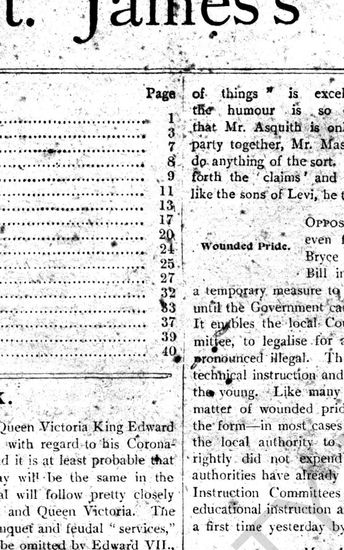 t. James's
Page
1
3
7
8
9
11
13
17
20
24
25
27
32
33
37
39
40
K.
Queen Victoria King Edward
with regard to his Corona-
d it is at least probable that
ay will be the same in the
al will follow pretty closely
and Queen Victoria. The
nquet and feudal "services,"
be omitted by Edward VII.,
of things" is excel
the humour is so
that Mr. Asquith is onl
party together, Mr. Mas
do anything of the sort.
forth the 'claims' and
like the sons of Levi, he t
Wounded Pride.
OPPOS
even f
Bryce
Bill in
a temporary measure to
until the Government ca
It enables the local Cou
mittee, to legalise for a
pronounced illegal. Th
technical instruction and
the young. Like many
matter of wounded prid
the form—in most cases
the local authority to
rightly did not expend
authorities have already
Instruction Committees
educational instruction a
a first time yesterday by